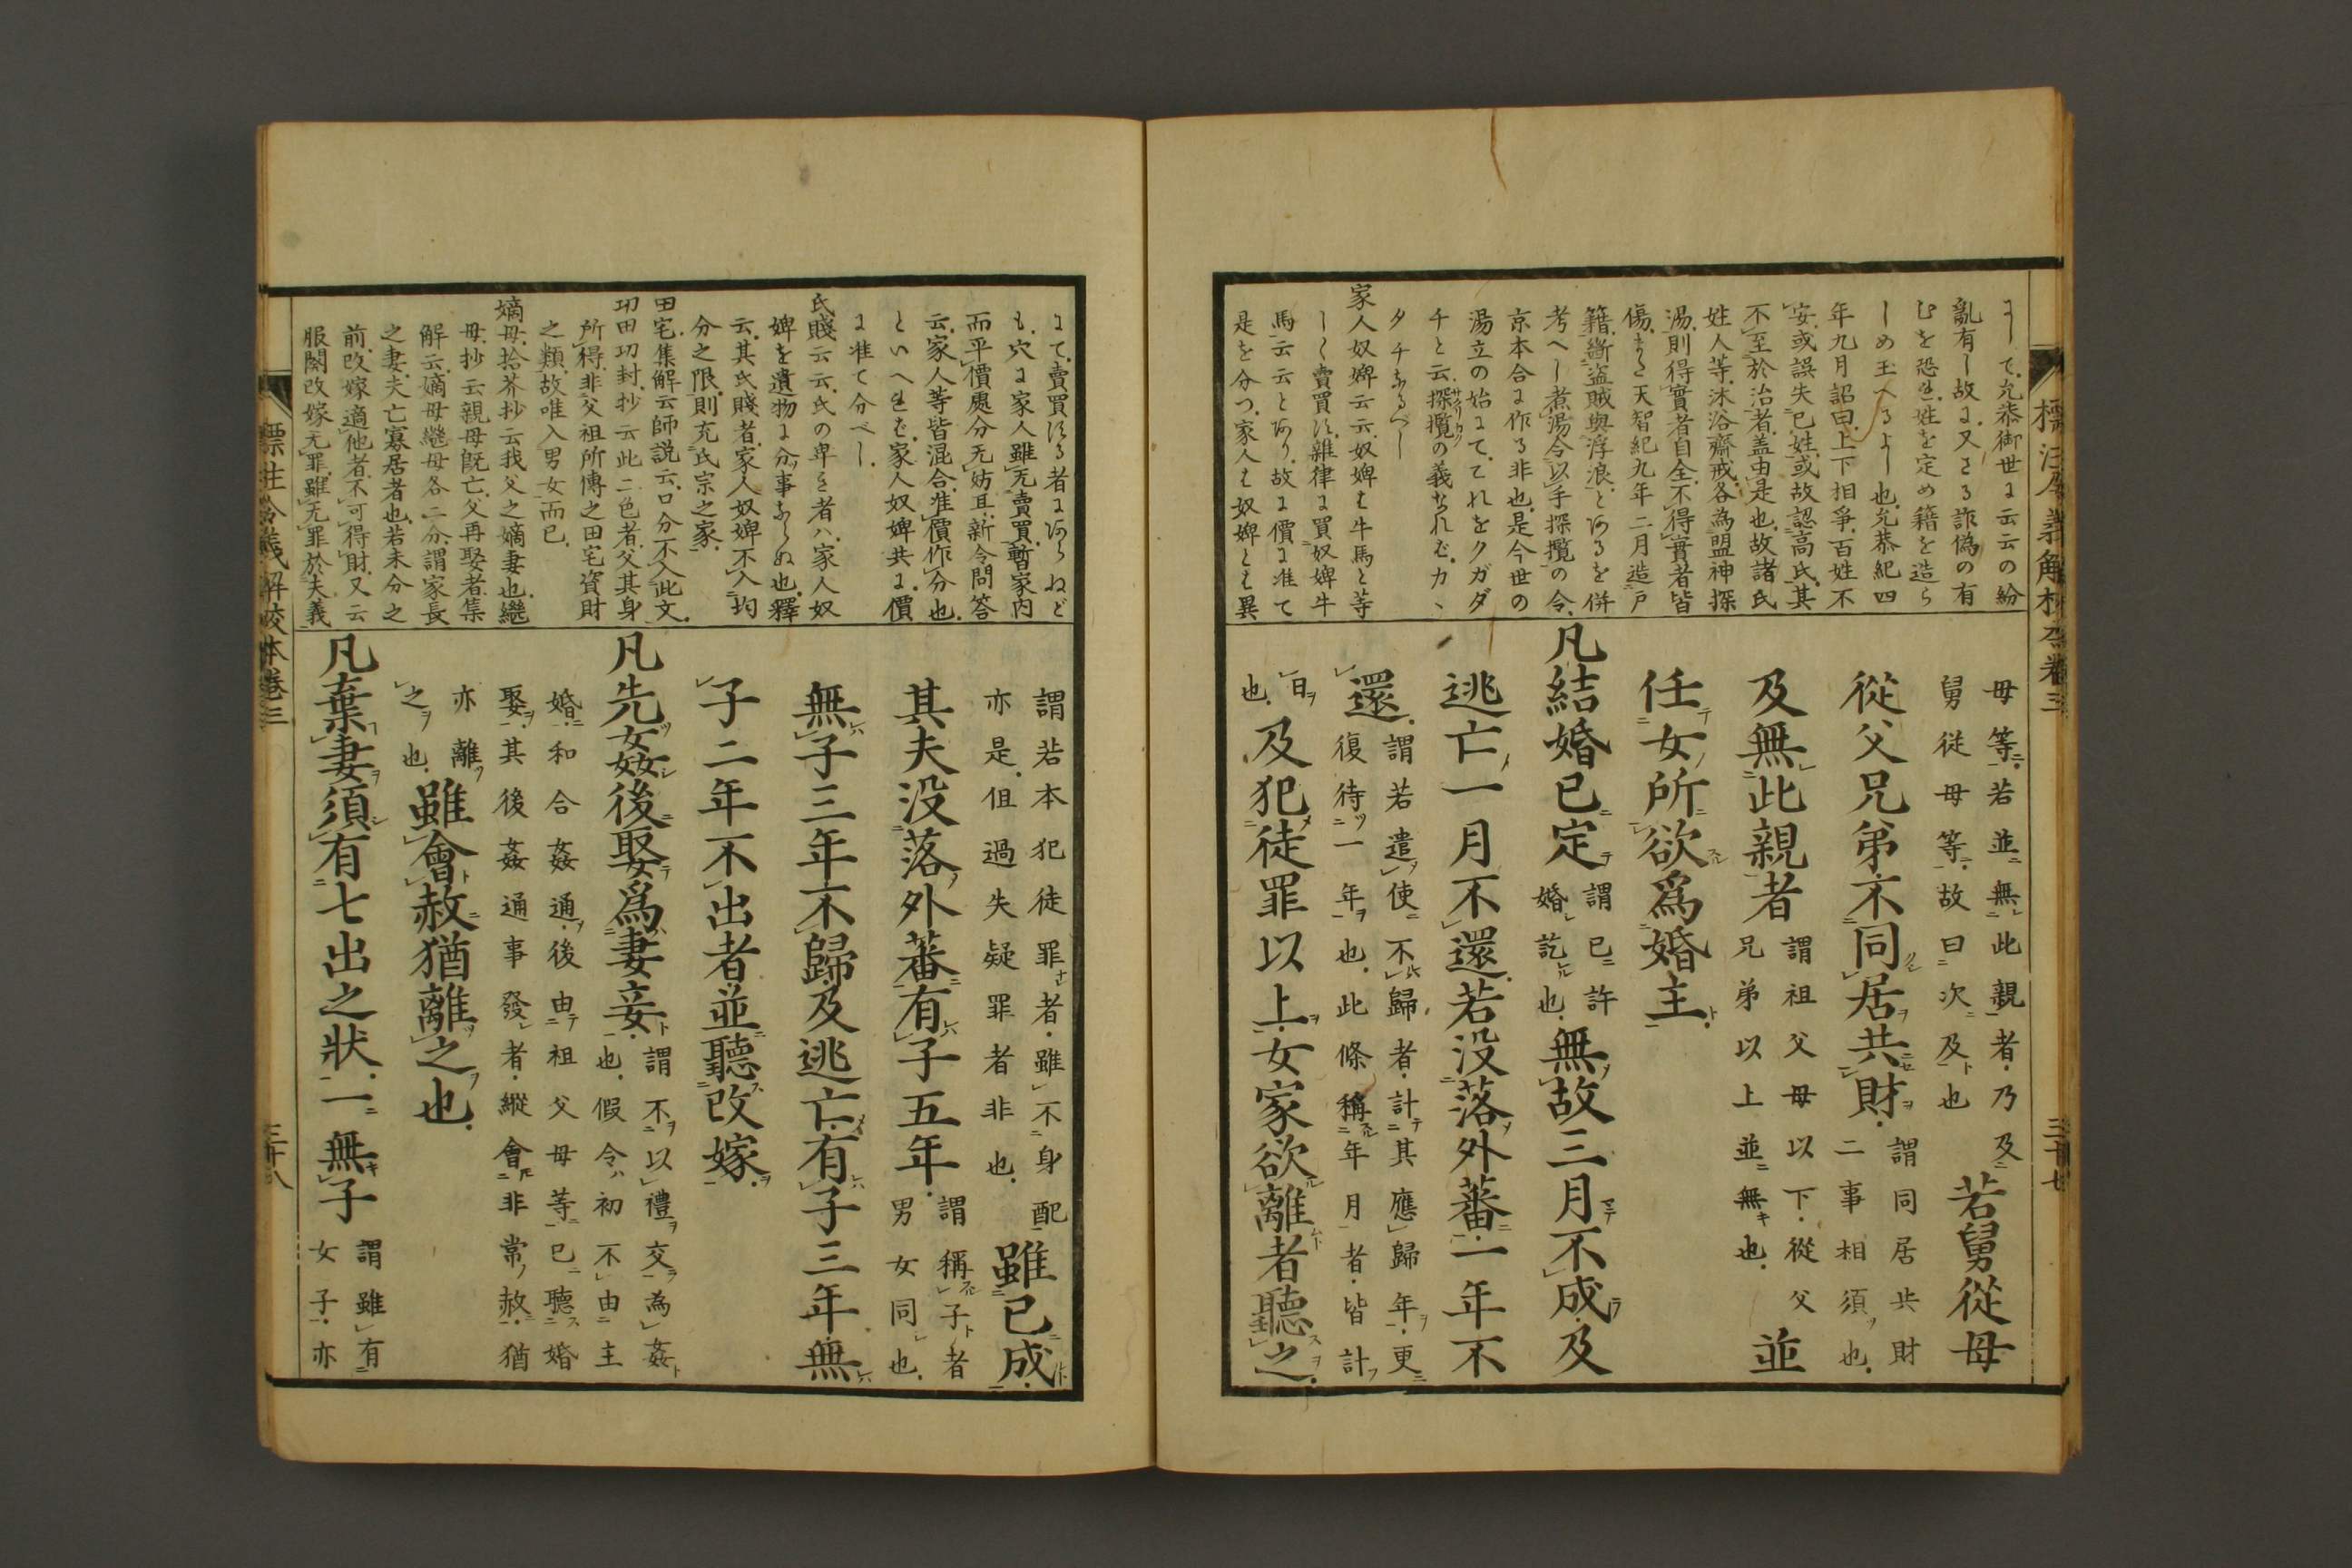 標注令義解校本卷三
三十七
にして允恭御世に云云の紛
亂有し故に又さる詐僞の有
むを恐れ姓を定め籍を造ら
しめ玉へるよし也允恭紀四
年九月詔曰上下相爭百姓不
安或誤失己姓或故認高氏其
不至於治者盖由是也故諸氏
姓人等沐浴齋戒各為盟神探
湯則得實者自全不得實者皆
傷また天智紀九年二月造戸
籍斷盜賊與浮浪とあるを併
考へし煮湯令以手探攬の令
京本合に作る非也是今世の
湯立の始にてこれをクガダ
チと云探攬の義なれどカヽ
タチなるべし
家人奴婢云云奴婢も牛馬と等
しく賣買す雜律に買奴婢牛
馬云云とあり故に價に准て
是を分つ家人も奴婢とも異
母等若並無此親者乃及
舅從母等故曰次及也
若舅從母
從父兄弟不同居共財
謂同居共財
二事相須也
及無此親者
謂祖父母以下從父
兄弟以上並無也
並
任女所欲爲婚主
凡結婚已定
謂已許
婚訖也
無故三月不成及
逃亡一月不還若没落外蕃一年不
還
謂若遣使不歸者計其應歸年更
復待一年也此條稱年月者皆計
日
也
及犯徒罪以上女家欲離者聽之
にて賣買する者にあらねど
も穴に家人雖无賣買暫家内
而平價處分无妨耳新令問答
云家人等皆混合准價作分也
といへれど家人奴婢共に價
に准て分べし
氏賤云云氏の卑き者ハ家人奴
婢を遺物に分事ならぬ也釋
云其氏賤者家人奴婢不入均
分之限則充氏宗之家
田宅集解云師説云口分不入此文
功田功封抄云此二色者父其身
所得非父祖所傳之田宅資財
之類故唯入男女而已
嫡母拾芥抄云我父之嫡妻也繼
母抄云親母既亡父再娶者集
解云嫡母繼母各二分謂家長
之妻夫亡寡居者也若未分之
前改嫁適他者不可得財又云
服闋改嫁无罪雖无罪於夫義
謂若本犯徒罪者雖不身配
亦是但過失疑罪者非也
雖已成
其夫没落外蕃有子五年
謂稱子者
男女同也
無子三年不歸及逃亡有子三年無
子二年不出者並聽改嫁
凡先姦後娶爲妻妾
謂不以禮交為姦
也假令初不由主
婚和合姦通後由祖父母等已聽婚
娶其後姦通事發者縱會非常赦猶
亦離
之也
雖會赦猶離之也
凡棄妻須有七出之狀一無子
謂雖有
女子亦
標注令義解校本卷三
三十八